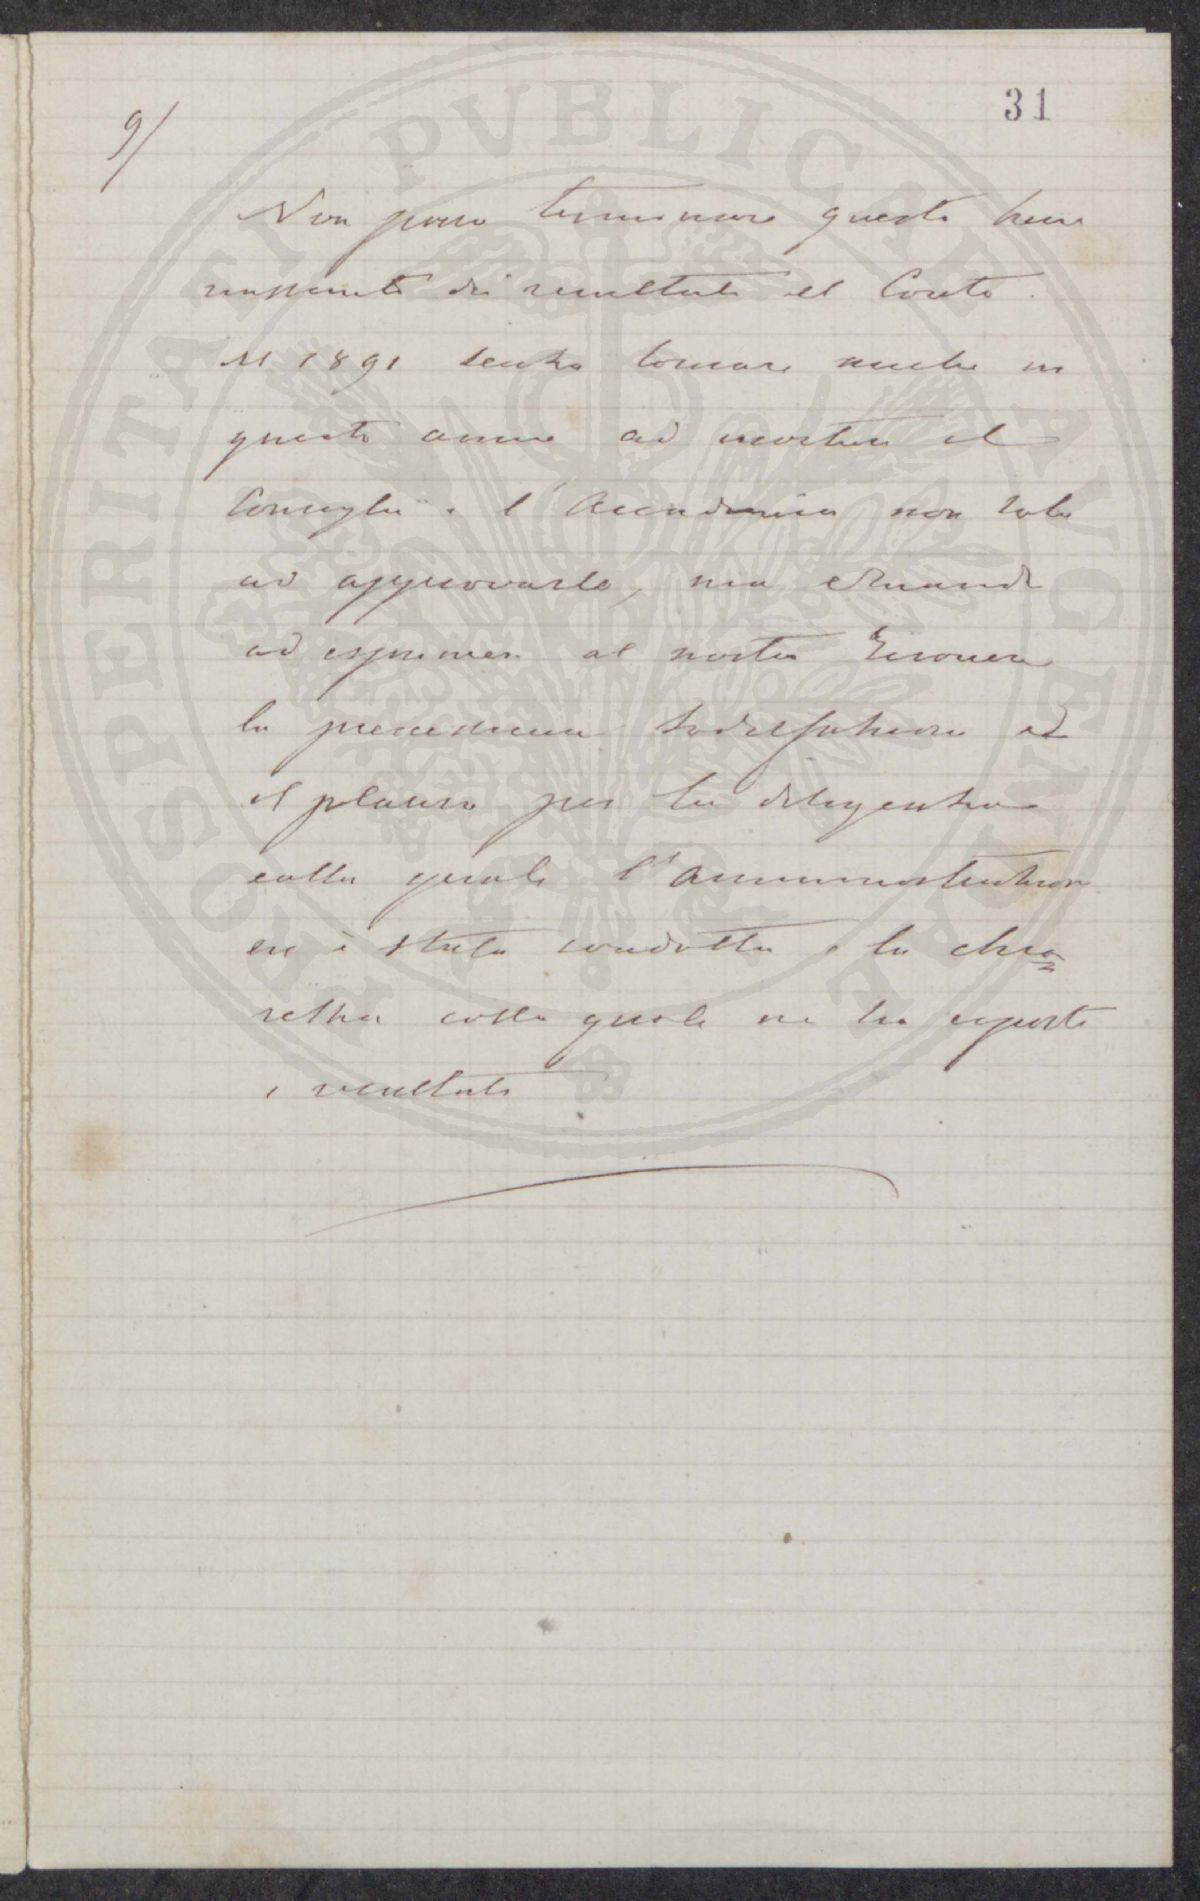 31
9/
Non posso terminare questo breve
riassunto dei resultati del Conto
del 1891 senza tornare anche in
quest'anno ad invitare il
Consiglio e l'Accademia non solo
ad approvarlo, ma eziandio
ad esprimere al nostro Tesoriere
la pienissima sodisfazione ed
il plauso per la diligenza
colla quale l'amministrazion
ne è stata condotta e la chia=
rezza colla quale ne ha esposti
i resultati
PROSPERITATI PVBLICAE AVGENDAE